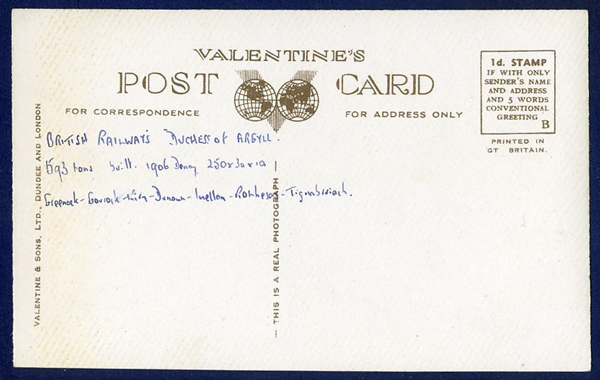 VALENTINE'S
POST CARD
FOR CORRESPONDENCE
FOR ADDRESS ONLY
1d. STAMP
IF WITH ONLY
SENDER'S NAME
AND ADDRESS
AND 5 WORDS
CONVENTIONAL
GREETING
B
PRINTED IN
GT BRITAIN.
BRITISH RAILWAYS DUCHESS of ARGYLL.
593 tons built. 1906 Denny 250x30x10
Greenock-Gourock-Kirn-Dunoon-Innellan-Rothesay-Tignabruaich.
VALENTINE & SONS, LTD., DUNDEE AND LONDON
— THIS IS A REAL PHOTOGRAPH —